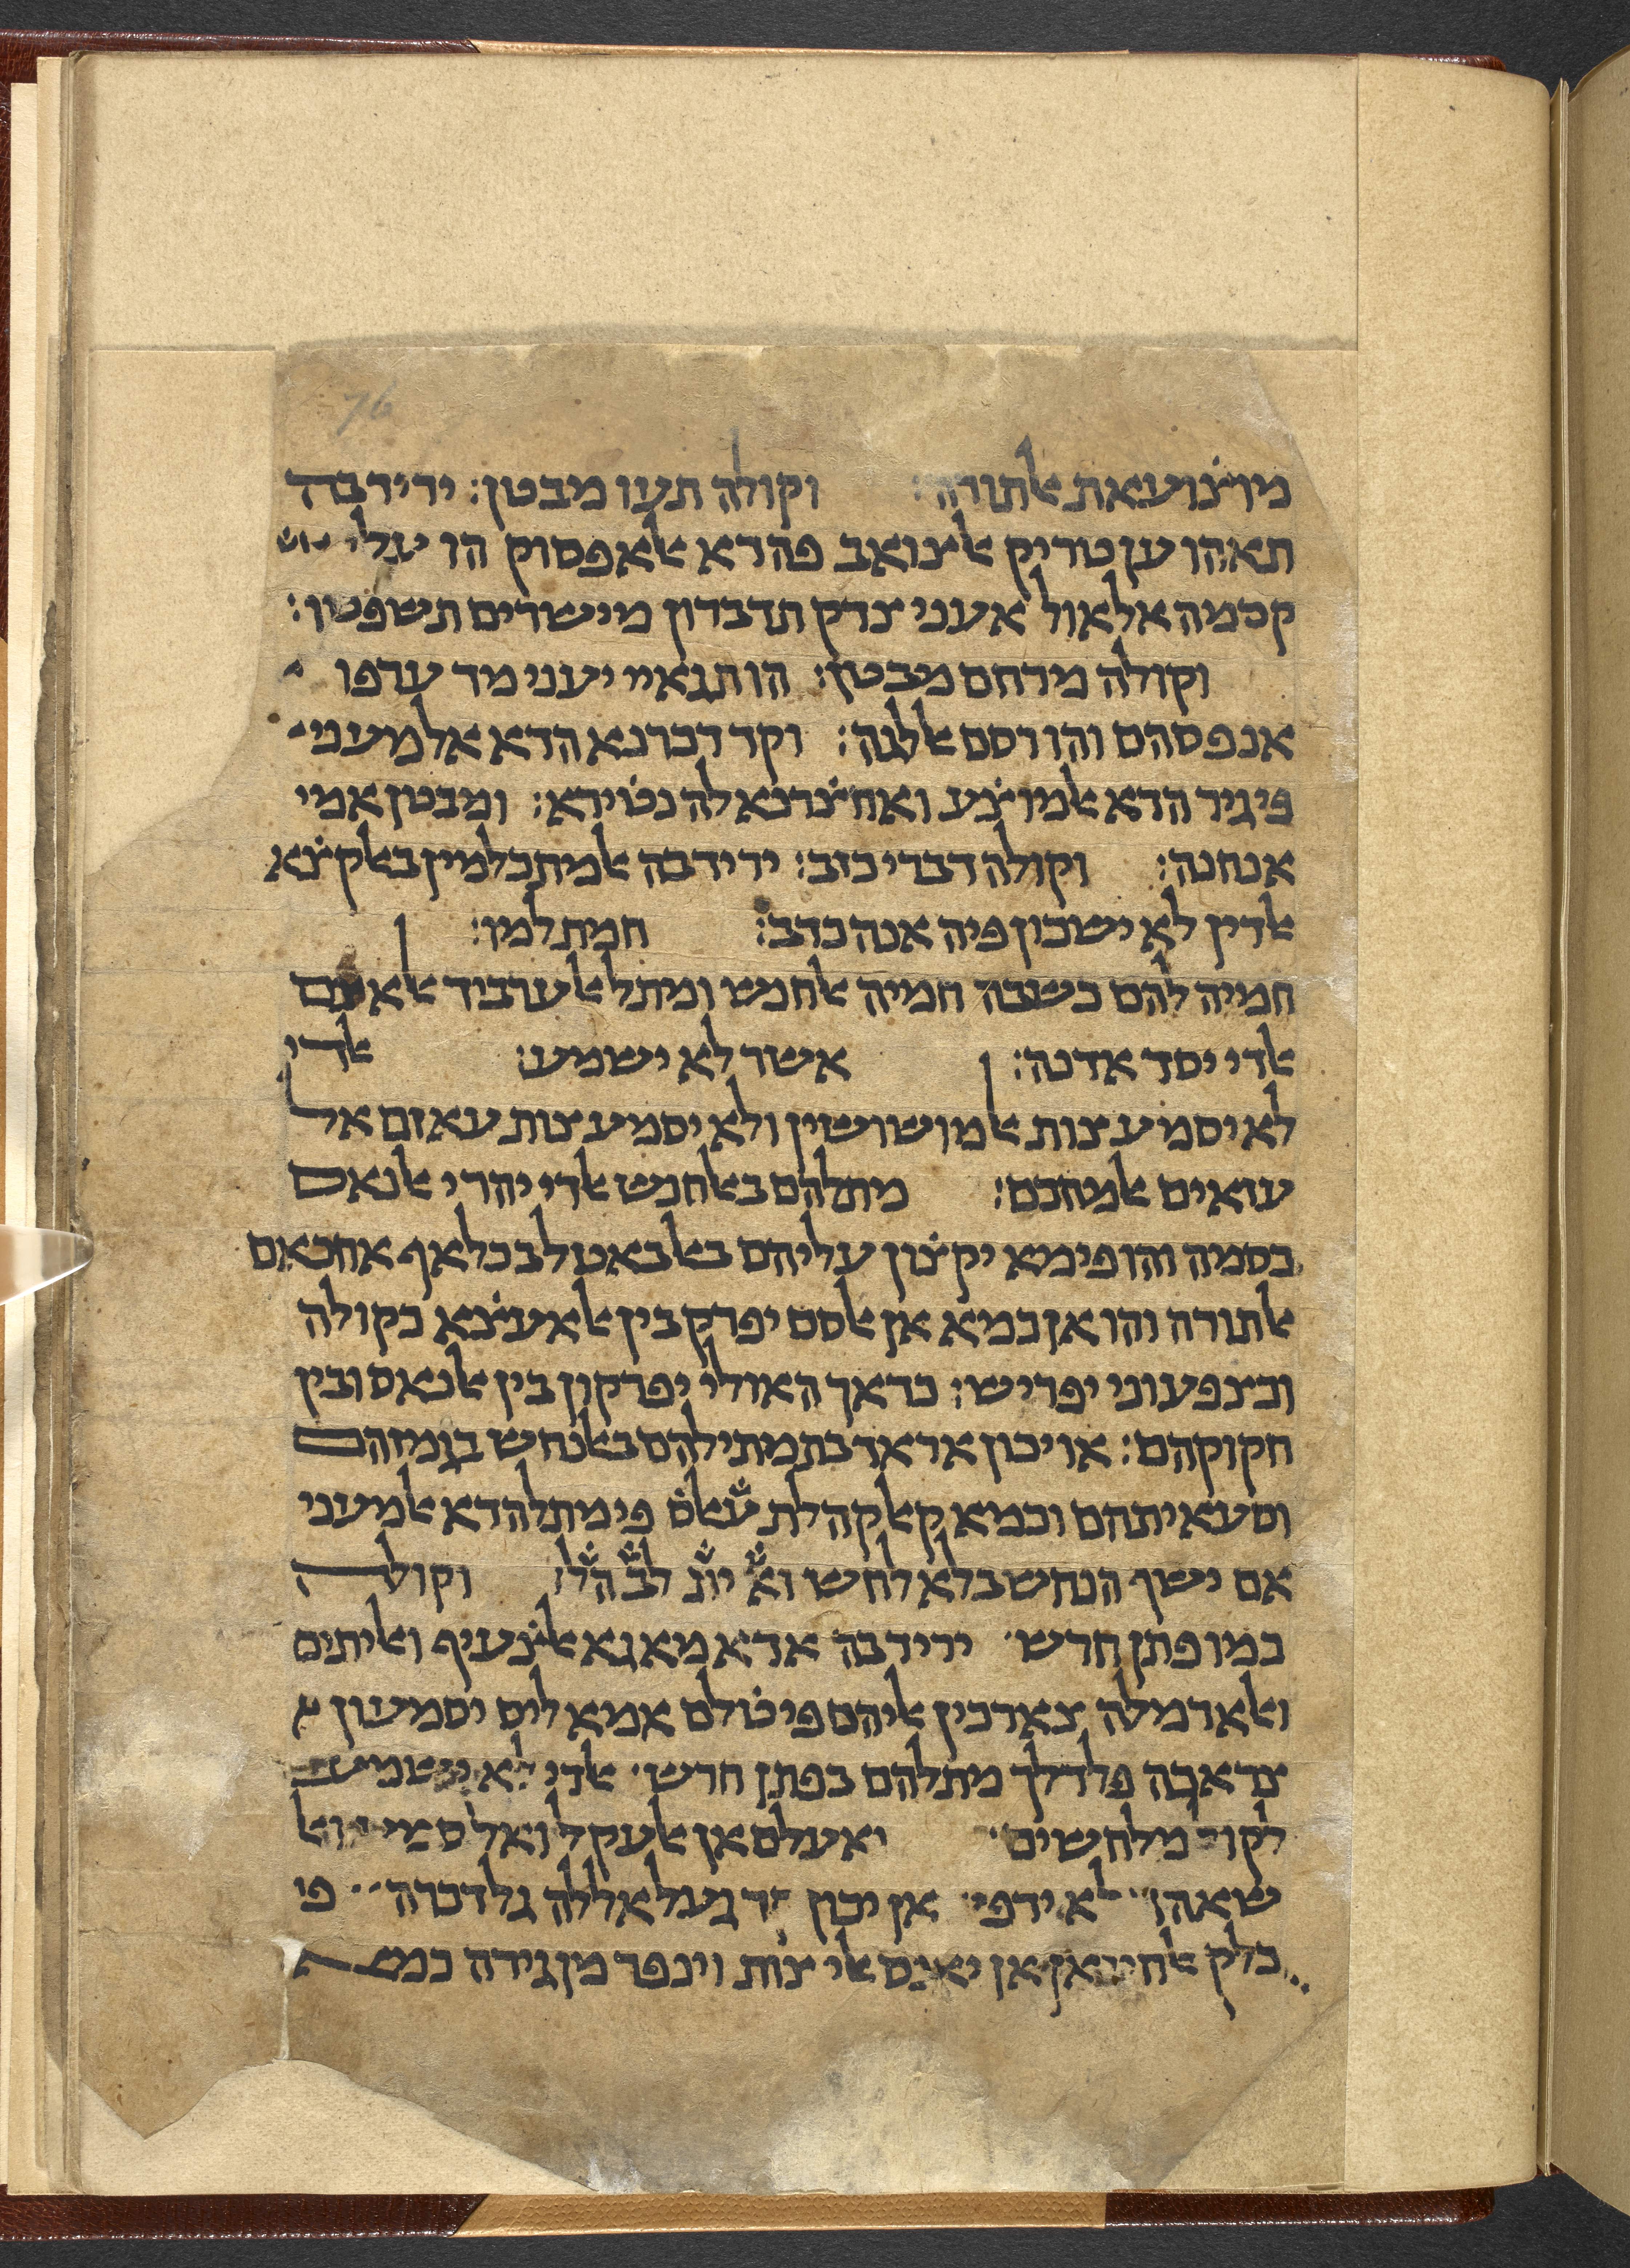 76
מוצׄועאת אלתורה: וקולה תעו מבטן: יריד בה
תאהו ען טריק אלצואב פהדא אלאפסוק הו עלי
קסמה אלאול אעני צדק תדברון מישרים תשפטו:
וקולה מרחם מבטן: הו תגאיי יעני מד ערפו
אנפסהם והו רסם אללגה: וקד דכרנא הדא אלמעני
פי גיר הדא אלמוצׄע ואחצׄרנא לה נטׄירא: ומבטן אמי
אנחנה: וקולה דברי כזב: יריד בה אלמתכלמין באלקצׄא
אלדין לא ישכון פיה אנה כדב: חמת למו:
חמיה להם כשבה חמיה אלחנש ומתל אלערבוד אלאצם
אלדי יסד אדנה: אשר לא ישמע: אלדי
לא יסמע צות אלמושושין ולא יסמע צות עאזם אל
עזאים אלמחכם: מתלהם באלחנש אלדי יהרי אלנאס
בסמה והו פימא יקצׄון עליהם באלבאטל בכלאף אחכאם
אלתורה והו אן כמא אן אלסם יפרק בין אלאעצׄא כקולה
וכצפעוני יפריש: כדאך האולי יפרקון בין אלנאס ובין
חקוקהם: או יכון אראד בתמתילהם באלנחש בגמזהם
וסעאיתהם וכמא קאל קהלת עׄאלסׄ פי מתל הדא אלמעני
אם ישך הנחש בלא לחש ואׄ יתׄ לבׄ הלׄ וקולה
כמו פתן חרש יריד בה אדא מא גא אלצׄעיף ואליתים
ואלארמלה צארכין אליהם פי טׄולם אמא ליס יסמעון
צראכה פלדלך מתלהם בפתן חרש אלדי לא ישמע
לקול מלחשים ואעלם אן אלעקל ואלסמע
שאהד לא ידפי אן יכון קד געל אללה גל דכרה פי
כלק אלחיואן אן יאנס אלי צות וינפר מן גירה כמא